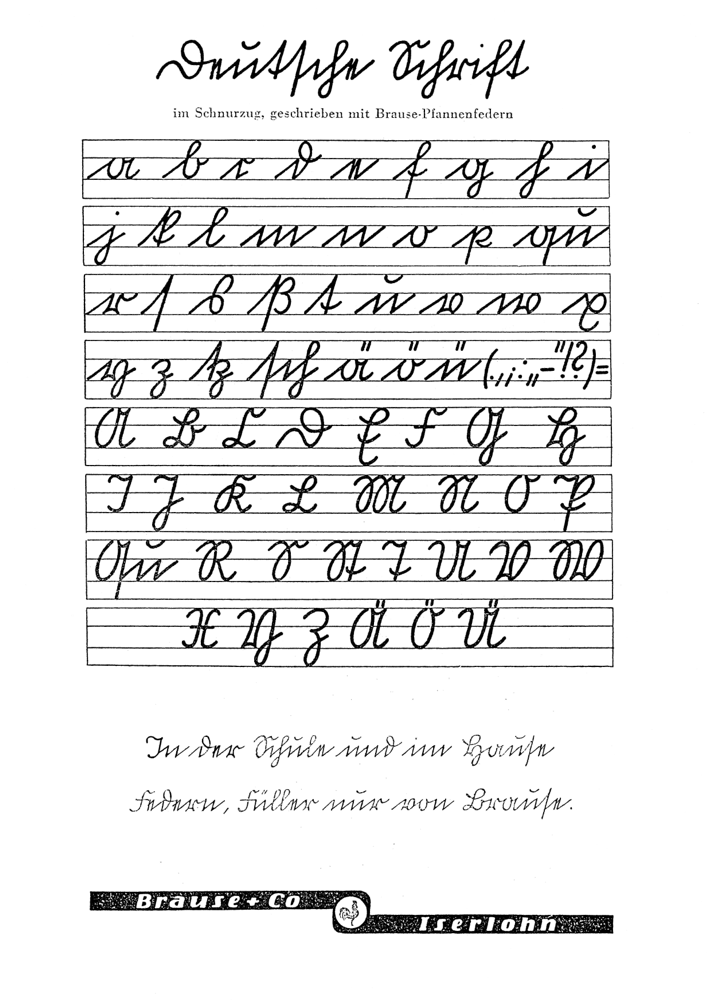 Deutsche Schrift
im Schnurzug, geschrieben mit Brause-Pfannenfedern
a b c d e f g h i
j k l m n o p qu
r s s ß t u v w x
y z tz sch ä ö ü (.,;:„-"!?)=
A B C D E F G H
I J K L M N O P
Qu R S St T U V W
X Y Z Ä Ö Ü
In der Schule und im Hause
Federn, Füller nur von Brause.
Brause + Co
Iserlohn